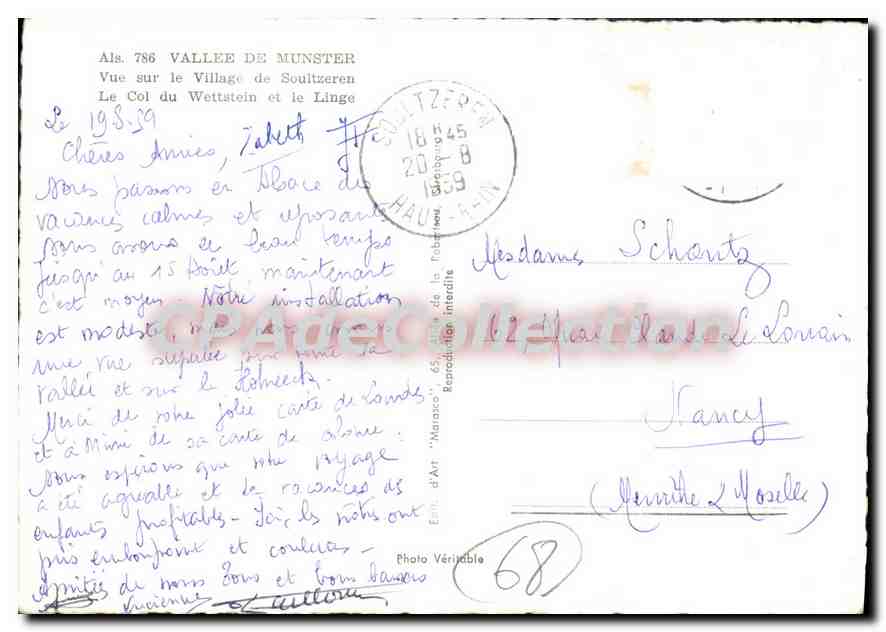 Als. 786 VALLEE DE MUNSTER
Vue sur le Village de Soultzeren
Le Col du Wettstein et le Linge
Le 19-8-59
Chères Amies,
Nous passons en Alsace des
vacances calmes et reposantes
Nous avons eu beau temps
jusqu'au 15 Août, maintenant
c'est moyen. Notre installation
est modeste, mais nous avons
une vue superbe sur toute la
vallée et sur le Hohneck.
Merci de votre jolie carte de Lourdes
et à Mimi de sa carte de
Nous espérons que votre voyage
a été agréable et les vacances des
enfants profitables - Ici, les nôtres ont
pris embonpoint et couleurs -
Amitiés de nous tous et bons baisers
Lucienne
Zabeth
SOULTZEREN
18 H 45
20 - 8
1959
HAUT-RHIN
Edit. d'Art "Marasco", 65, Allée de la Robertsau, Strasbourg
Reproduction interdite
Photo Véritable
Mesdames Schantz
62 Quai Claude Le Lorrain
Nancy
(Meurthe & Moselle)
68
CPAdeCollection